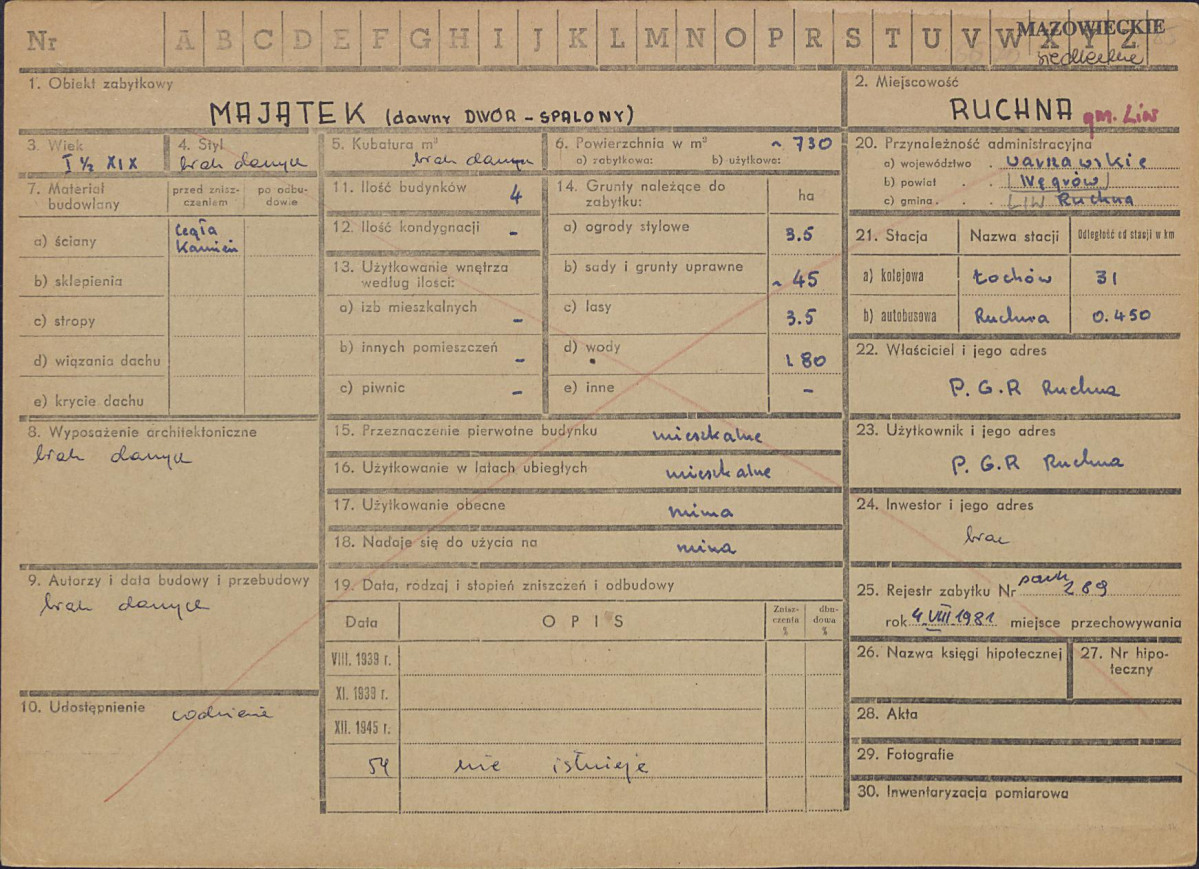 Nr A B C D E F G H I J K L M N O P R S T U V W X Y Z
MAZOWIECKIE
siedleckie
1. Obiekt zabytkowy
MAJĄTEK (dawny DWÓR - SPALONY)
2. Miejscowość
RUCHNA gm. Liw
3. Wiek
I ½ XIX
4. Styl
brak danych
5. Kubatura m³
brak danych
6. Powierzchnia w m² ~ 730
a) zabytkowa: b) użytkowa:
7. Materiał budowlany
przed znisz-
czeniem
po odbu-
dowie
a) ściany
cegła
Kamień
b) sklepienia
c) stropy
d) wiązania dachu
e) krycie dachu
8. Wyposażenie architektoniczne
brak danych
9. Autorzy i data budowy i przebudowy
brak danych
10. Udostępnienie codziennie
11. Ilość budynków 4
12. Ilość kondygnacji -
13. Użytkowanie wnętrza
według ilości:
a) izb mieszkalnych -
b) innych pomieszczeń -
c) piwnic -
14. Grunty należące do
zabytku:
ha
a) ogrody stylowe 3.5
b) sady i grunty uprawne ~ 45
c) lasy 3.5
d) wody 1.80
e) inne -
15. Przeznaczenie pierwotne budynku mieszkalne
16. Użytkowanie w latach ubiegłych mieszkalne
17. Użytkowanie obecne ruina
18. Nadaje się do użycia na ruina
19. Data, rodzaj i stopień zniszczeń i odbudowy
Data
OPIS
Znisz-
czenia
%
dbu-
dowa
%
VIII. 1939 r.
XI. 1939 r.
XII. 1945 r.
54 nie istnieje
20. Przynależność administracyjna
a) województwo . warszawskie
b) powiat . . Węgrów
c) gmina . . LIW Ruchna
21. Stacja
Nazwa stacji
Odległość od stacji w km
a) kolejowa Łochów 31
b) autobusowa Ruchna 0.450
22. Właściciel i jego adres
P.G.R Ruchna
23. Użytkownik i jego adres
P.G.R Ruchna
24. Inwestor i jego adres
brak
25. Rejestr zabytku Nr park 289
rok 4 VIII 1981 miejsce przechowywania
26. Nazwa księgi hipotecznej
27. Nr hipo-
teczny
28. Akta
29. Fotografie
30. Inwentaryzacja pomiarowa